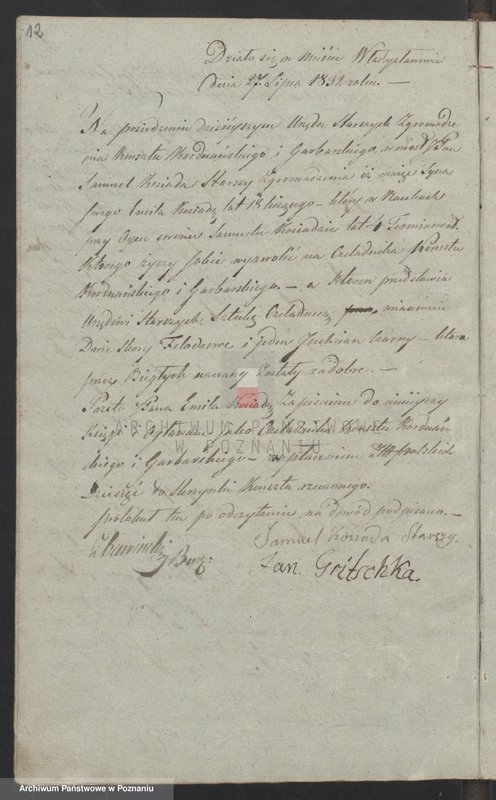 12
Działo się w mieście Władysławowie
Dnia 27. Lipca 1832 roku. —
Na posiedzeniu dzisiejszym Urzędu Starszych Zgromadze
nia Kunsztu Korduańskiego i Garbarskiego, wniósł Pan
Samuel Kosiada Starszy Zgromadzenia iż maiąc Syna
swego Emila Kosiadę lat 18 liczącego — który w Naukach
przy Oycu swoim Samuelu Kosiadzie lat 4 Terminował.
Którego życzy sobie wyzwolić na Czeladnika Kunsztu
Korduańskiego i Garbarskiego. — a Któren przedstawia
Urzędowi Starszych, Sztukę Czeladniczą, mianowicie
Dwie Skóry i jeden Juchtan Czarny — która
przez Biegłych uznaną zostały za dobre. —
Poczt. Pana Emila Kosiadę Zapisuiem do niniejszey
Księgi i Ogłaszam Jako Czeladnika Kunsztu Korduań
skiego i Garbarskiego — wpłaceniem Złł polskich
Dziesięć do Skrzynki Kunsztu rzeczonego.
protokuł ten po odczytaniu, na Dowód podpisano. —
Samuel Kossada Starszy.
Burz:
Jan. Gritschka.
ARCHIWUM PAŃSTWOWE
W POZNANIU
Archiwum Państwowe w Poznaniu